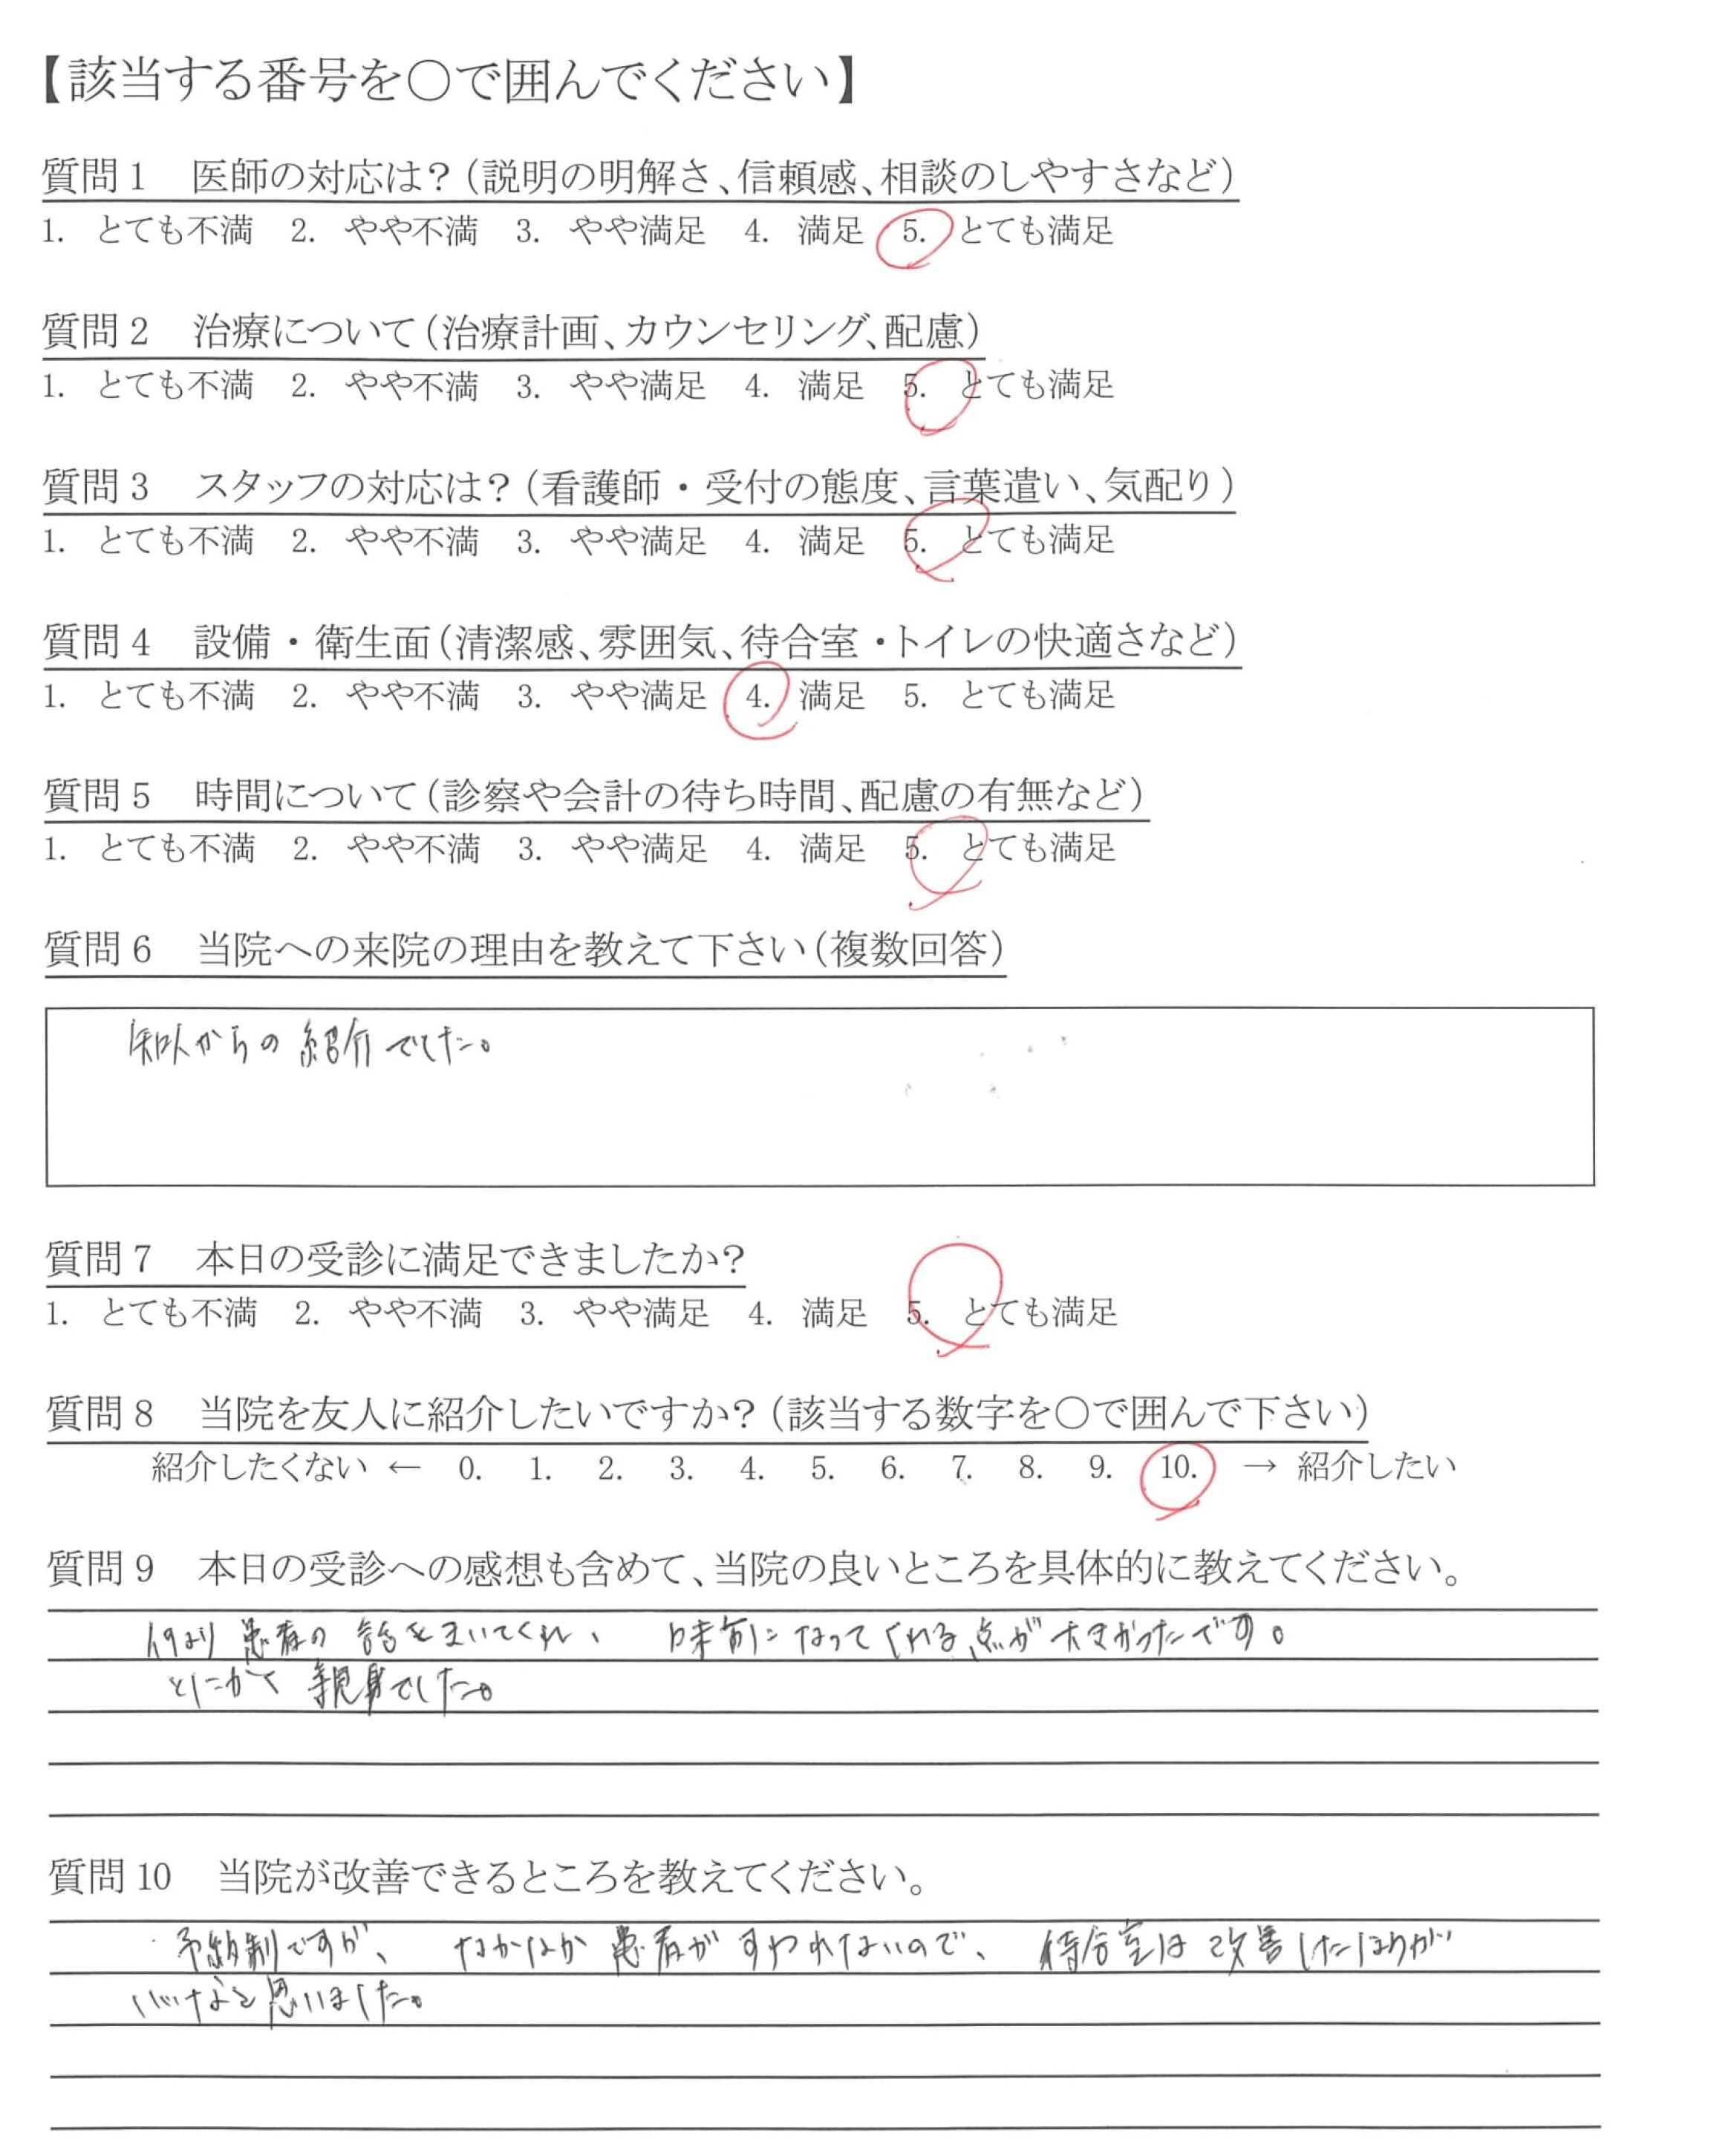 【該当する番号を○で囲んでください】
質問1 医師の対応は?(説明の明解さ、信頼感、相談のしやすさなど)
1. とても不満 2. やや不満 3. やや満足 4. 満足 5. とても満足
質問2 治療について(治療計画、カウンセリング、配慮)
1. とても不満 2. やや不満 3. やや満足 4. 満足 5. とても満足
質問3 スタッフの対応は?(看護師・受付の態度、言葉遣い、気配り)
1. とても不満 2. やや不満 3. やや満足 4. 満足 5. とても満足
質問4 設備・衛生面(清潔感、雰囲気、待合室・トイレの快適さなど)
1. とても不満 2. やや不満 3. やや満足 4. 満足 5. とても満足
質問5 時間について(診察や会計の待ち時間、配慮の有無など)
1. とても不満 2. やや不満 3. やや満足 4. 満足 5. とても満足
質問6 当院への来院の理由を教えて下さい(複数回答)
知人からの紹介でした。
質問7 本日の受診に満足できましたか?
1. とても不満 2. やや不満 3. やや満足 4. 満足 5. とても満足
質問8 当院を友人に紹介したいですか?(該当する数字を○で囲んで下さい)
紹介したくない ← 0. 1. 2. 3. 4. 5. 6. 7. 8. 9. 10. → 紹介したい
質問9 本日の受診への感想も含めて、当院の良いところを具体的に教えてください。
何より患者の話をきいてくれ、味方になってくれる点が大きかったです。
とにかく親身でした。
質問10 当院が改善できるところを教えてください。
予約制ですが、なかなか患者がすわれないので、待合室は改善したほうが
いいなと思いました。